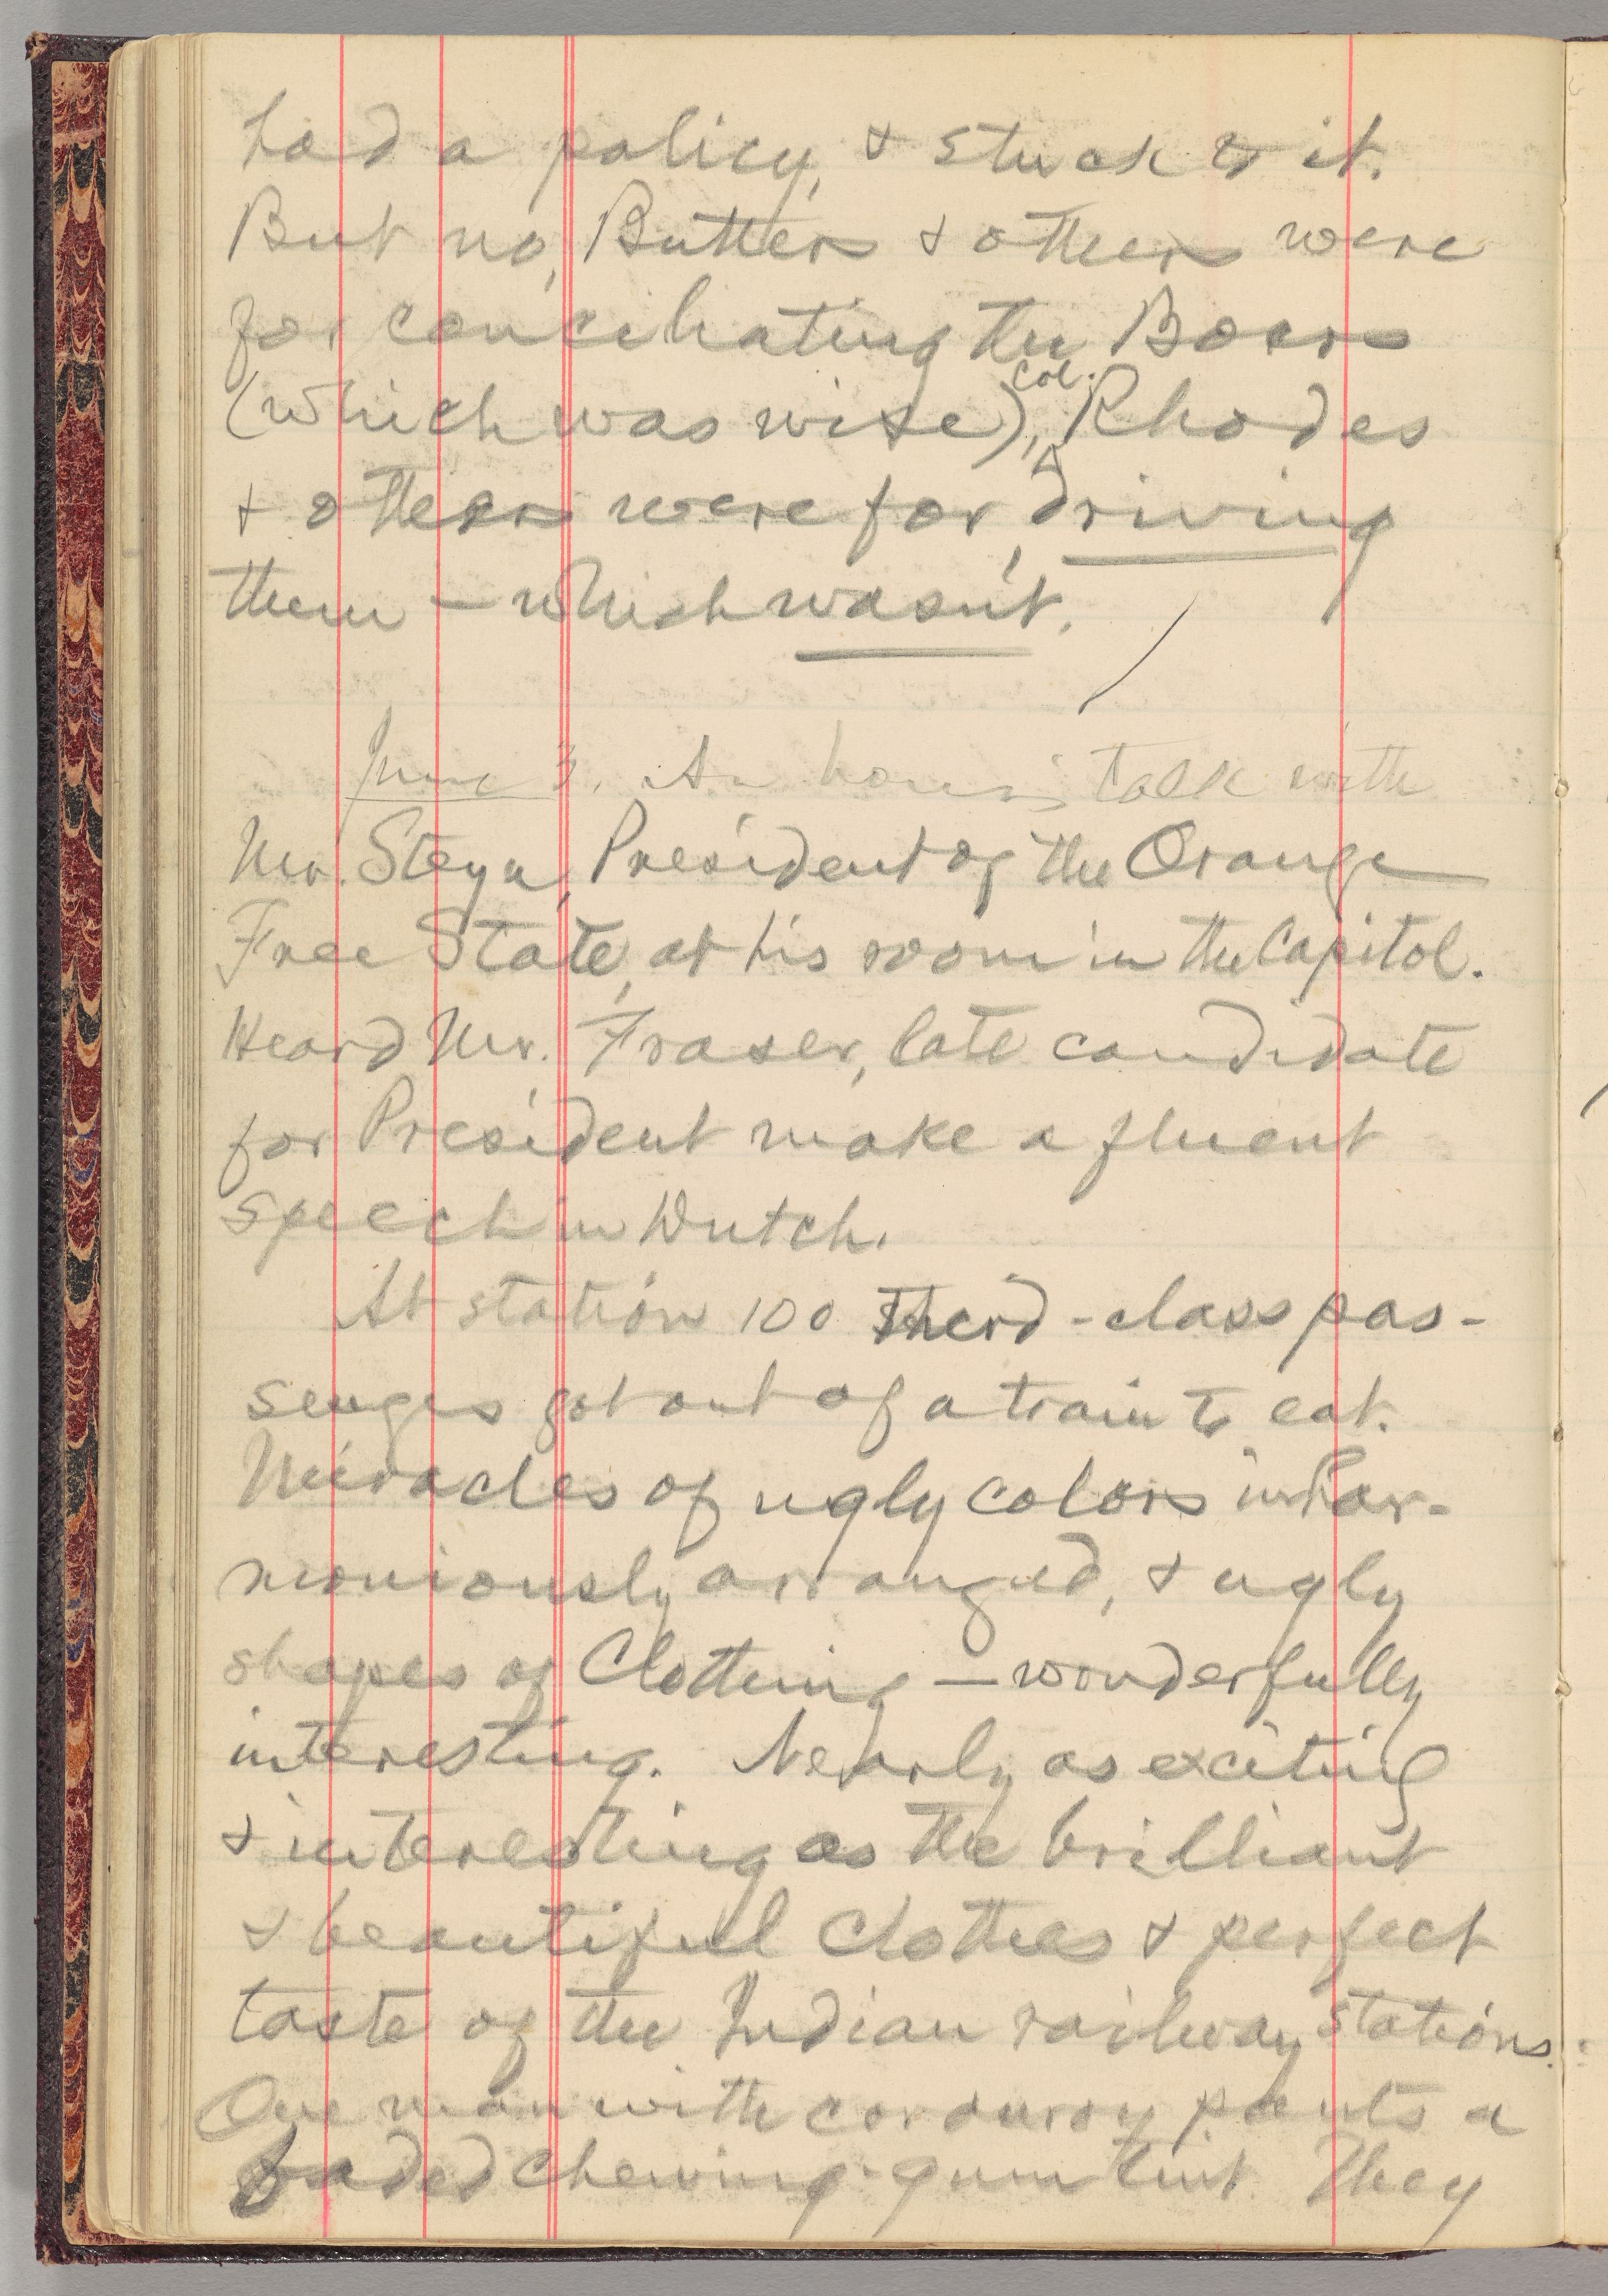 had a policy, & stuck to it.
But no, Butters & others were
for conciliating the Boers
(which was wise), Col. Rhodes
& others were for driving
them — which wasn't.
June 3. An hour's talk with
Mr. Steyn, President of the Orange
Free State, at his room in the Capitol.
Heard Mr. Fraser, late candidate
for President make a fluent
speech in Dutch.
At station 100 third-class pas-
sengers got out of a train to eat.
Miracles of ugly colors inhar-
moniously arranged, & ugly
shapes of clothing — wonderfully
interesting. Nearly as exciting
& interesting as the brilliant
& beautiful clothes & perfect
taste of the Indian railway stations.
One man with corduroy pants a
faded chewing-gum tint. They